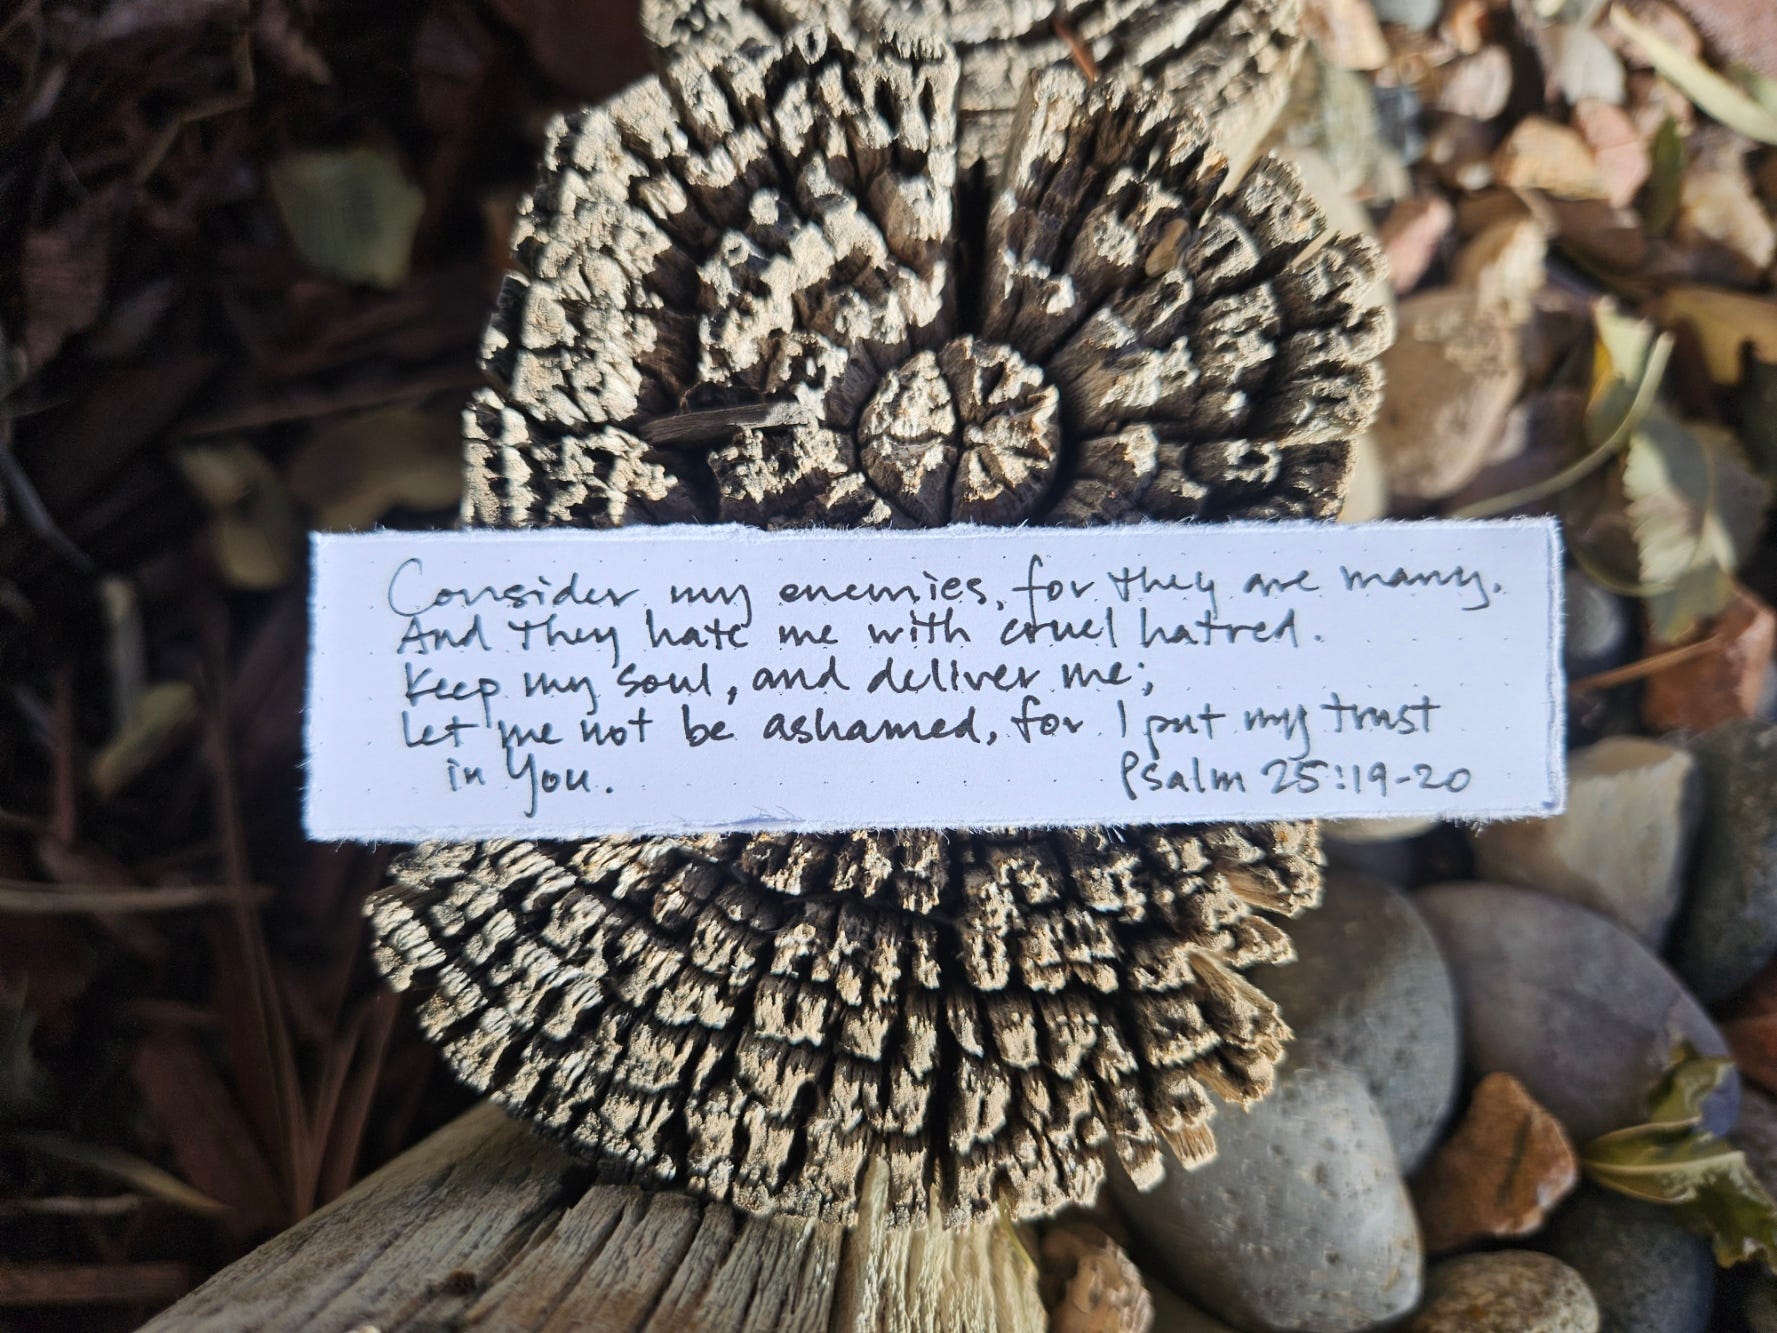 Consider my enemies, for they are many.
And they hate me with cruel hatred.
Keep my soul, and deliver me;
Let me not be ashamed, for I put my trust
in You.
Psalm 25:19-20